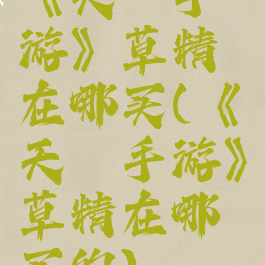 《天 手
游》草精
在哪买(《
天 手游》
草精在哪
买的)